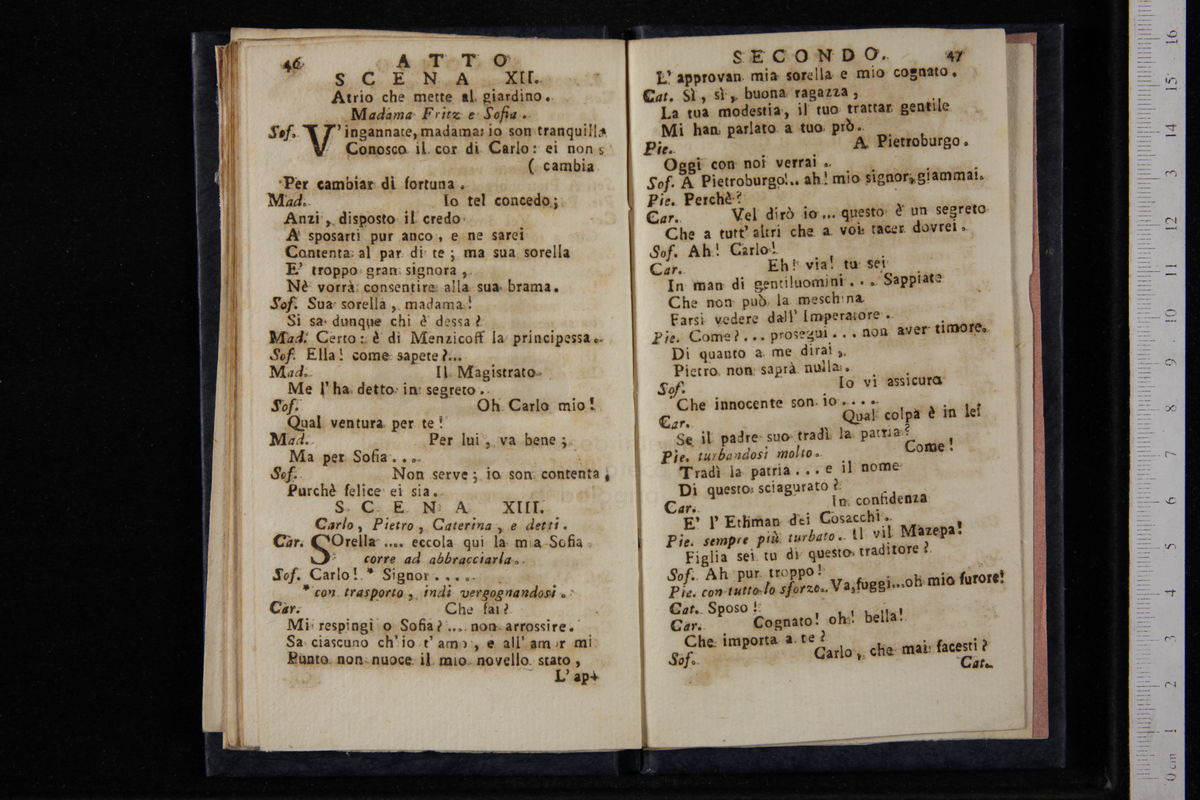 46 ATTO
SCENA XII.
Atrio che mette al giardino.
Madama Fritz e Sofia.
Sof. V'ingannate, madama: io son tranquilla
Conosco il cor di Carlo: ei non s
( cambia
Per cambiar di fortuna.
Mad. Io tel concedo;
Anzi, disposto il credo
A sposarti pur anco, e ne sarei
Contenta al par di te; ma sua sorella
E' troppo gran signora,
Nè vorrà consentire alla sua brama.
Sof. Sua sorella, madama!
Si sa dunque chi è dessa?
Mad. Certo: è di Menzicoff la principessa.
Sof. Ella! come sapete?...
Mad. Il Magistrato
Me l'ha detto in segreto.
Sof. Oh Carlo mio!
Qual ventura per te!
Mad. Per lui, va bene;
Ma per Sofia...
Sof. Non serve; io son contenta,
Purchè felice ei sia.
SCENA XIII.
Carlo, Pietro, Caterina, e detti.
Car. SOrella .... eccola qui la mia Sofia
corre ad abbracciarla.
Sof. Carlo! * Signor.....
* con trasporto, indi vergognandosi.
Car. Che fai?
Mi respingi o Sofia? .... non arrossire.
Sa ciascuno ch'io t'amo, e all'amor mi
Punto non nuoce il mio novello stato,
L'ap-
SECONDO. 47
L'approvan mia sorella e mio cognato.
Cat. Sì, sì, buona ragazza,
La tua modestia, il tuo trattar gentile
Mi han parlato a tuo prò.
Pie. A Pietroburgo.
Oggi con noi verrai.
Sof. A Pietroburgo!.. ah! mio signor, giammai.
Pie. Perchè?
Car. Vel dirò io... questo è un segreto
Che a tutt'altri che a voi tacer dovrei.
Sof. Ah! Carlo!
Car. Eh! via! tu sei
In man di gentiluomini... Sappiate
Che non può la meschina
Farsi vedere dall'Imperatore.
Pie. Come?... prosegui... non aver timore.
Di quanto a me dirai,
Pietro non saprà nulla.
Sof. Io vi assicuro
Che innocente son io....
Car. Qual colpa è in lei
Se il padre suo tradì la patria?
Pie. turbandosi molto. Come!
Tradì la patria... e il nome
Di questo sciagurato?
Car. In confidenza
E' l'Ethman dei Cosacchi.
Pie. sempre più turbato. Il vil Mazepa!
Figlia sei tu di questo traditore?
Sof. Ah pur troppo!
Pie. con tutto lo sforzo. Va, fuggi...oh mio furore!
Cat. Sposo!
Car. Cognato! oh! bella!
Che importa a te?
Sof. Carlo, che mai facesti?
Cat.